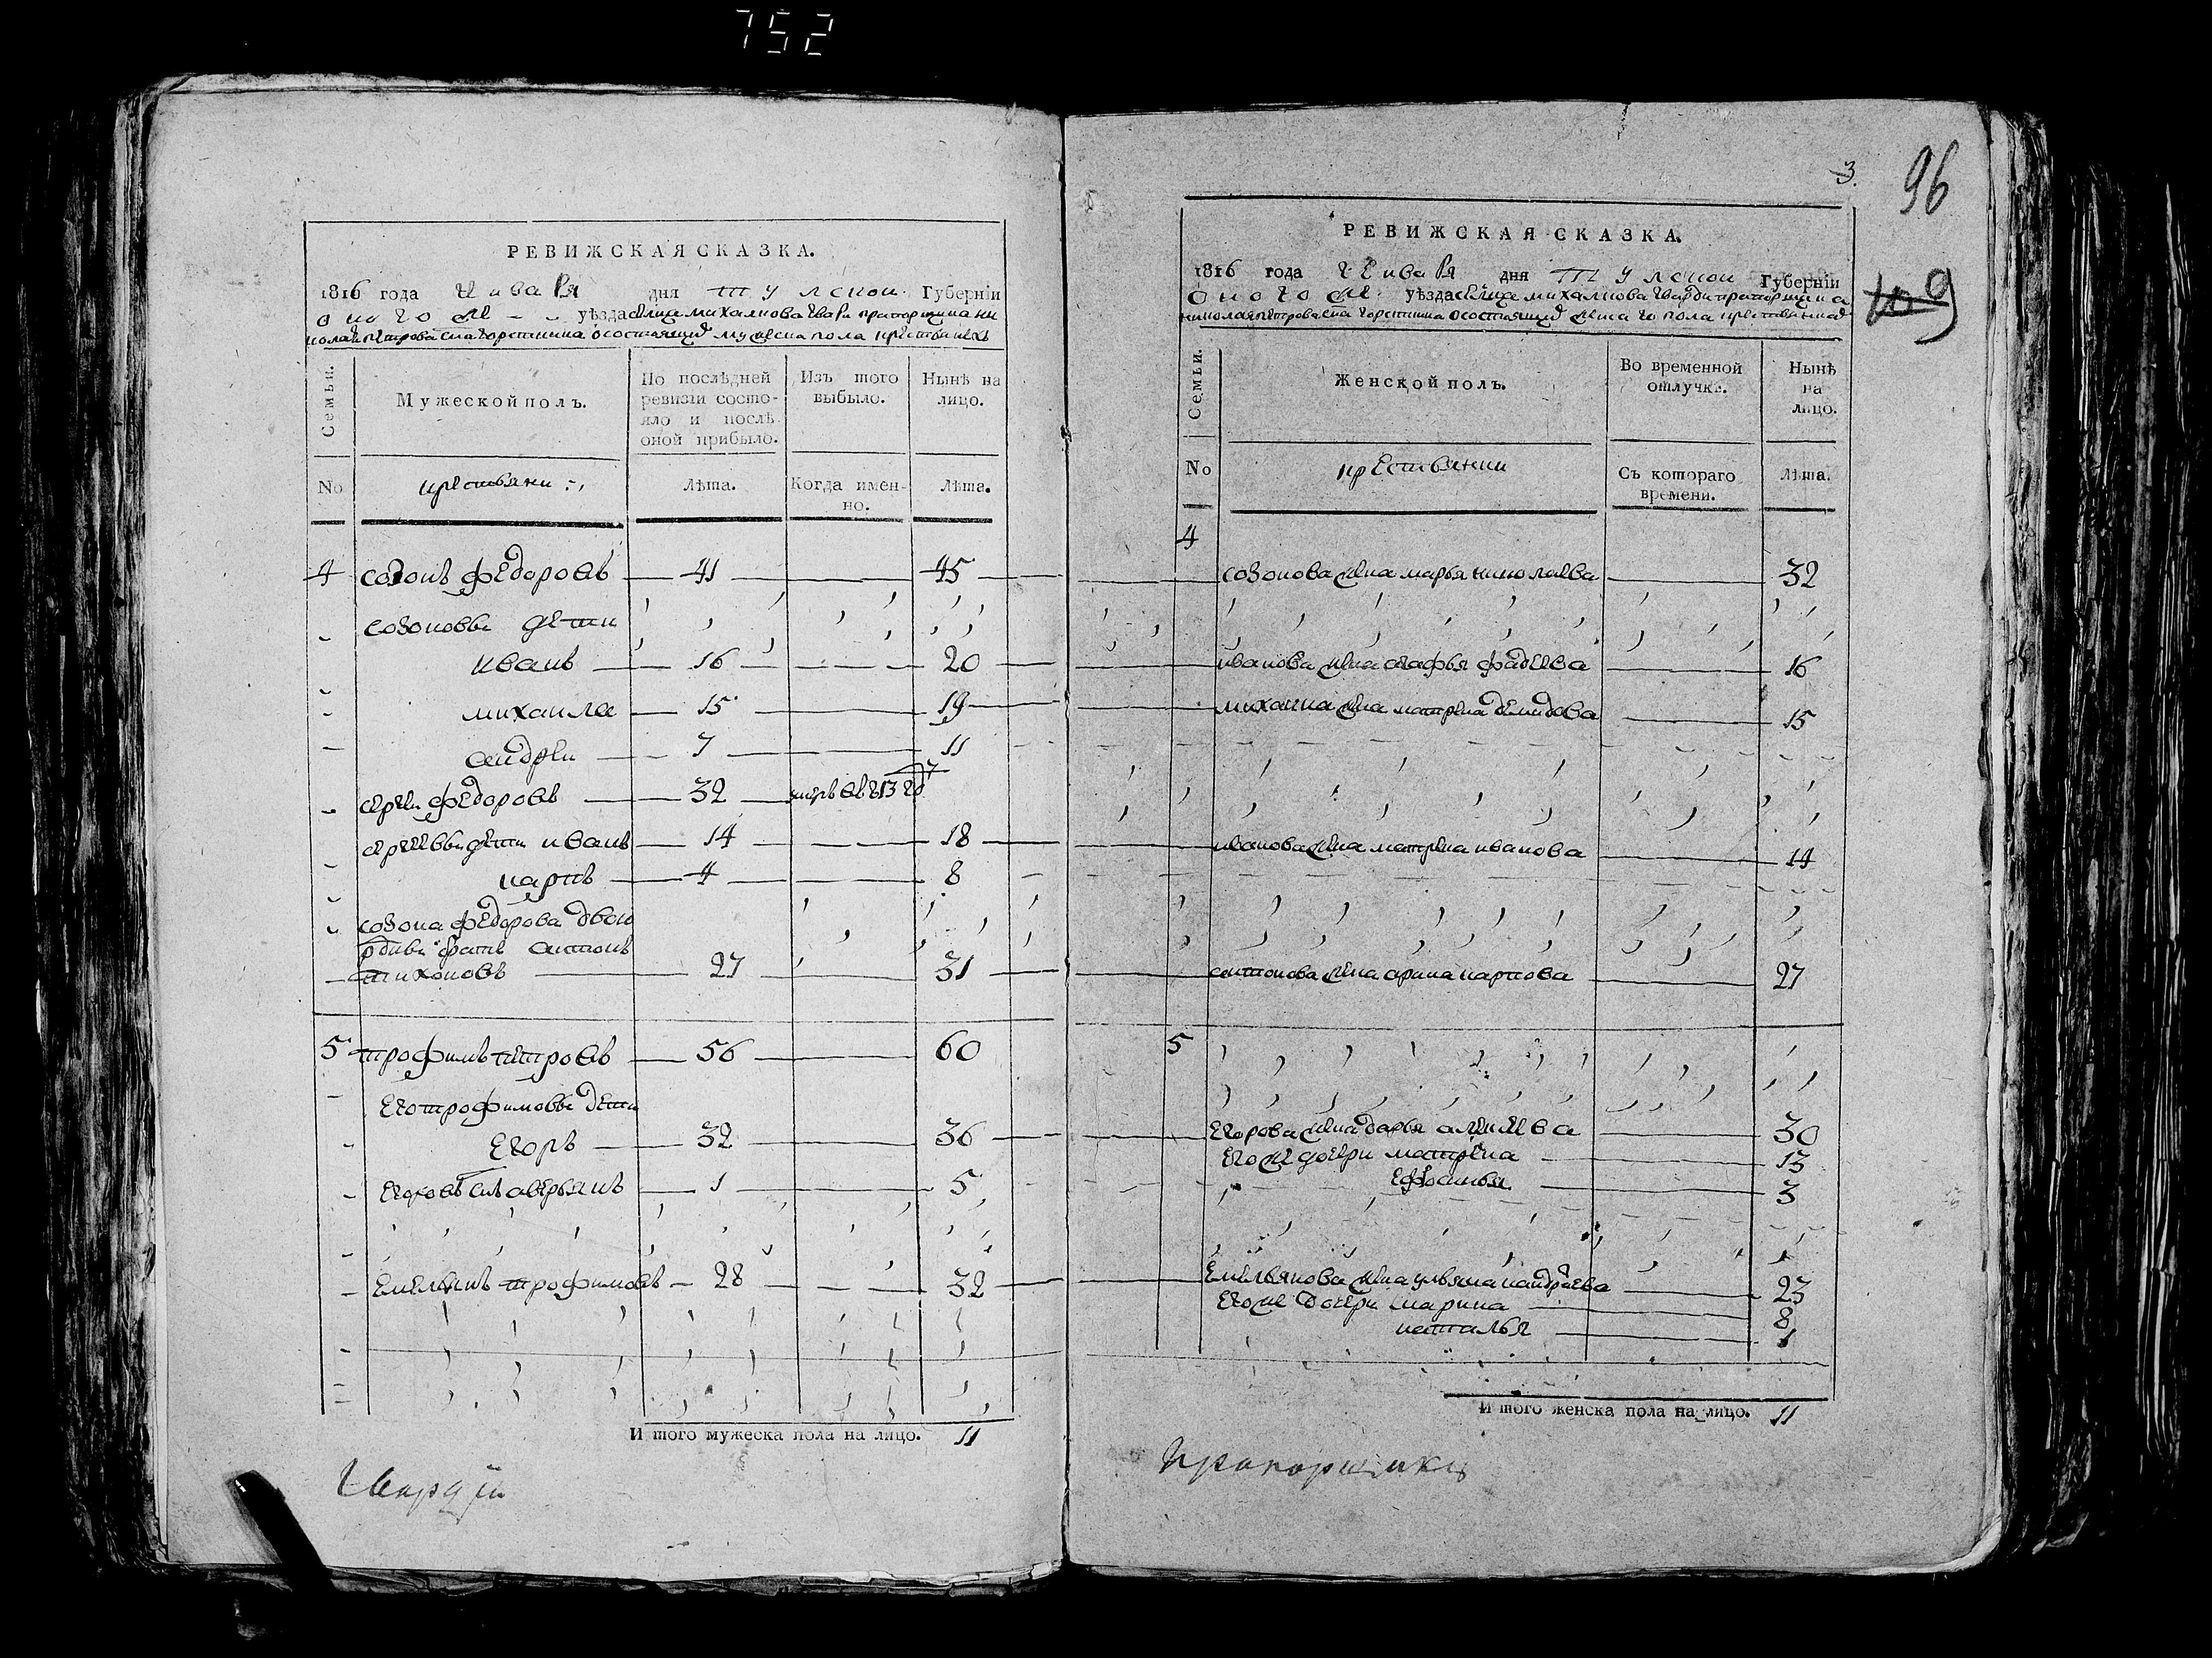 752
РЕВИЖСКАЯ СКАЗКА.
1816 года Генваря дня Тулской Губерніи
оного же уѣзда селца михалкова гварди прапорщика ни
колая петрова сна хорстинина о состоящих мужеска пола крестьянехъ
Семьи. Мужеской полъ. По послѣдней ревизіи состояло и послѣ оной прибыло. Изъ того выбыло. Нынѣ на лицо.
No крестьяни Лѣта. Когда именно. Лѣта.
4 созонъ федоровъ 41 45
созоновы дети
иванъ 16 20
михаила 15 19
андреи 7 11
сергеи федоровъ 32 умеръ въ 813 год
сергеевы дети иванъ 14 18
карпъ 4 8
созона федорова двою
родны братъ антонъ
тихоновъ 27 31
5 трофимъ петровъ 56 60
его трофимовы дети
егоръ 32 36
егоровъ снъ аверьянъ 1 5
емельянъ трофимовъ 28 32
И того мужеска пола на лицо. 11
Гвардіи
3.
96
9
РЕВИЖСКАЯ СКАЗКА.
1816 года Генваря дня Тулской Губерніи
оного же уѣзда селца михалкова гварди прапорщика
николая петрова сна хорстинина о состоящих женска го пола крестьянках
Семьи. Женской полъ. Во временной отлучкѣ. Нынѣ на лицо.
No крестьянки Съ котораго времени. Лѣта.
4
созонова жена марья николаева 32
иванова жена агафья фадеева 16
михаила жена матрена демидова 15
иванова жена матрена иванова 14
антонова жена арина карпова 27
5
егорова жена дарья алексеева 30
его же дочери матрена 13
ефросинья 3
емельянова жена ульяна кандраева 23
его же дочери марина 8
наталья 1
И того женска пола на лицо. 11
Прапорщика